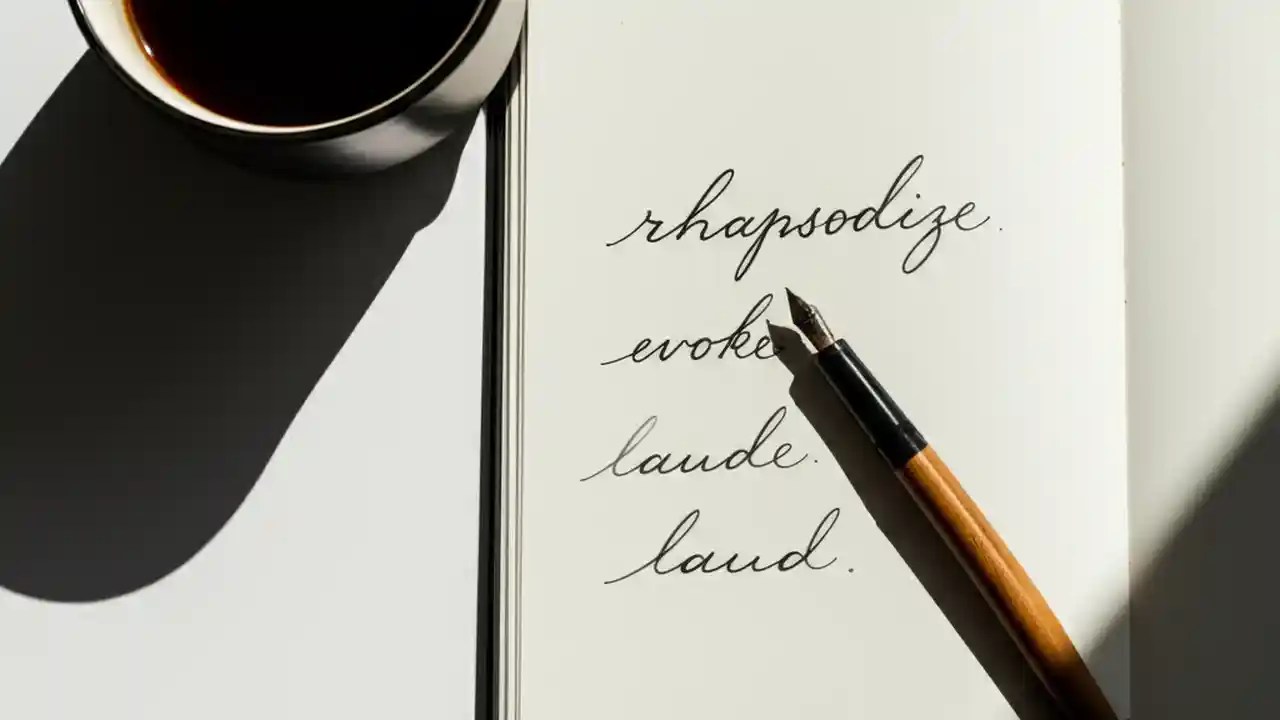 rhapsodize.
evoke
laude.
laud.